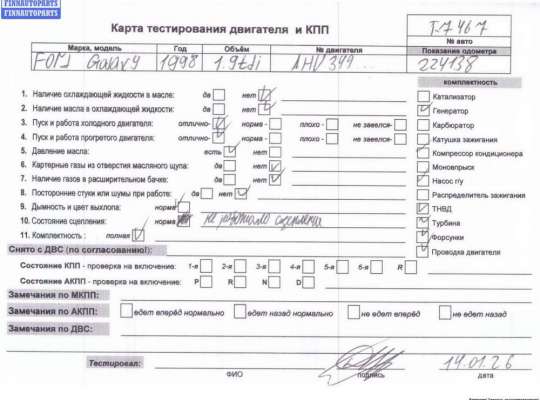 FINNAUTOPARTS
FINNAUTOPARTS
Карта тестирования двигателя и КПП
T-7467
№ авто
Марка, модель Год Объём № двигателя Показания одометра
FORD Galaxy 1998 1.9tdi AHU 349... 224138
комплектность
1. Наличие охлаждающей жидкости в масле: да нет
2. Наличие масла в охлаждающей жидкости: да нет
3. Пуск и работа холодного двигателя: отлично- норма - плохо - не завелся-
4. Пуск и работа прогретого двигателя: отлично- норма - плохо - не завелся-
5. Давление масла: есть нет
6. Картерные газы из отверстия масляного щупа: да нет
7. Наличие газов в расширительном бачке: да нет
8. Посторонние стуки или шумы при работе: да нет
9. Дымность и цвет выхлопа: норма
10. Состояние сцепления: норма не работало сцепление
11. Комплектность : полная
Катализатор
Генератор
Карбюратор
Катушка зажигания
Компрессор кондиционера
Моновпрыск
Насос г/у
Распределитель зажигания
ТНВД
Турбина
Форсунки
Проводка двигателя
Снято с ДВС (по согласованию!):
Состояние КПП - проверка на включение: 1-я 2-я 3-я 4-я 5-я 6-я R
Состояние АКПП - проверка на включение: P R N D
Замечания по МКПП:
Замечания по АКПП: едет вперёд нормально едет назад нормально не едет вперёд не едет назад
Замечания по ДВС:
Тестировал: 14.01.26
ФИО подпись дата